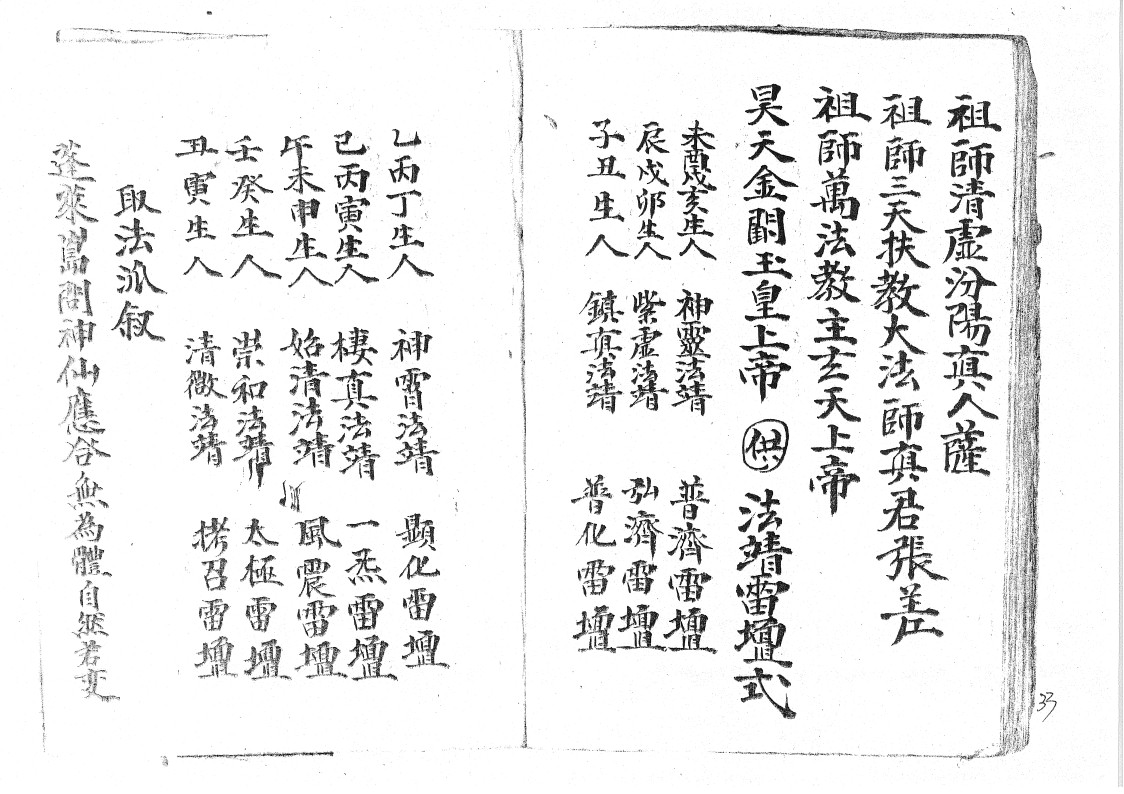 祖師清虛汾陽真人薩
祖師三天扶教大法師真君張
祖師萬法教主玄天上帝
昊天金闕玉皇上帝 供 法靖雷壇式
未酉戌亥生人 神靈法靖 普濟雷壇
辰戌卯生人 紫虛法靖 弘濟雷壇
子丑生人 鎮真法靖 普化雷壇
乙丙丁生人 神霄法靖 顯化雷壇
己丙寅生人 棲真法靖 一炁雷壇
午未申生人 始清法靖 風震雷壇
壬癸生人 崇和法靖 太極雷壇
丑寅生人 清微法靖 拷召雷壇
取法派叙
蓬萊島問神仙應谷無為體自然君变
33